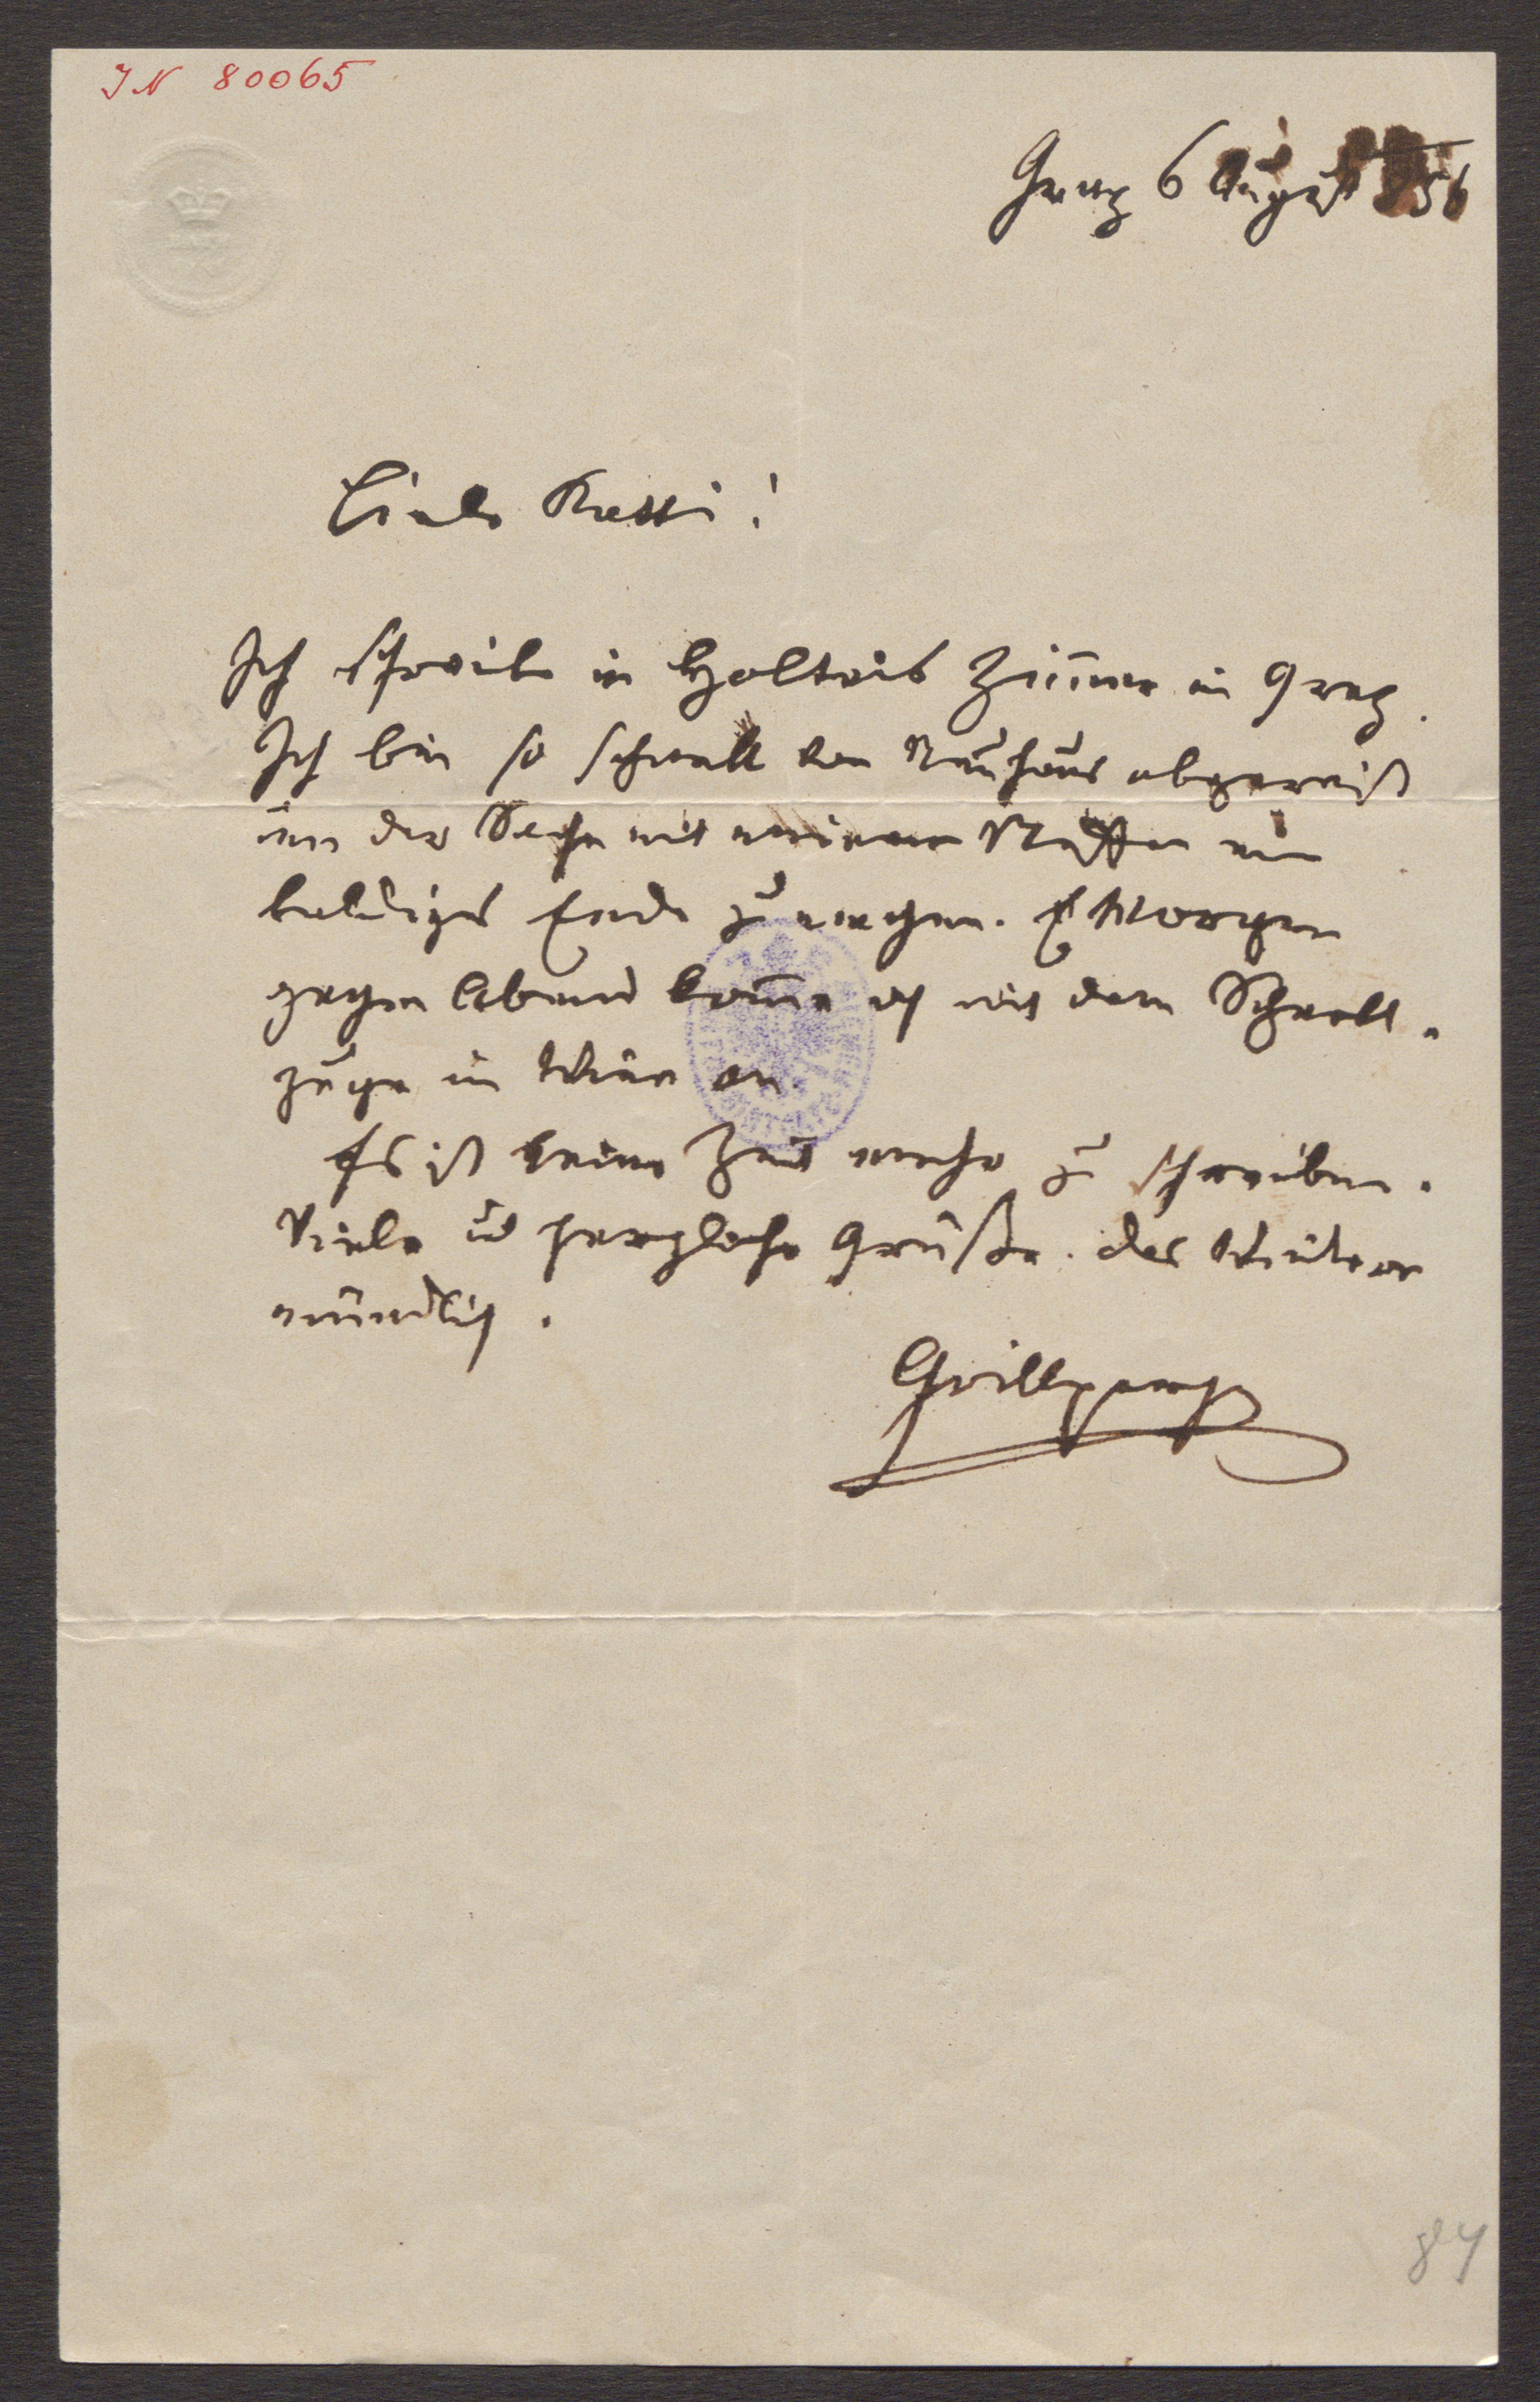 IN 80065
Gratz 6 August 856
Liebe Katti!
Ich schreibe in Holteis Zimmer in Gratz.
Ich bin so schnell von Neuhaus abgereist
um der Sache mit meinem Neffen ein
baldiges Ende zu machen. Morgen
gegen Abend komme ich mit dem Schnell-
zuge in Wien an.
Es ist keine Zeit mehr zu schreiben.
Viele u herzliche Grüße. das Weitere
mündlich.
Grillparzer
84